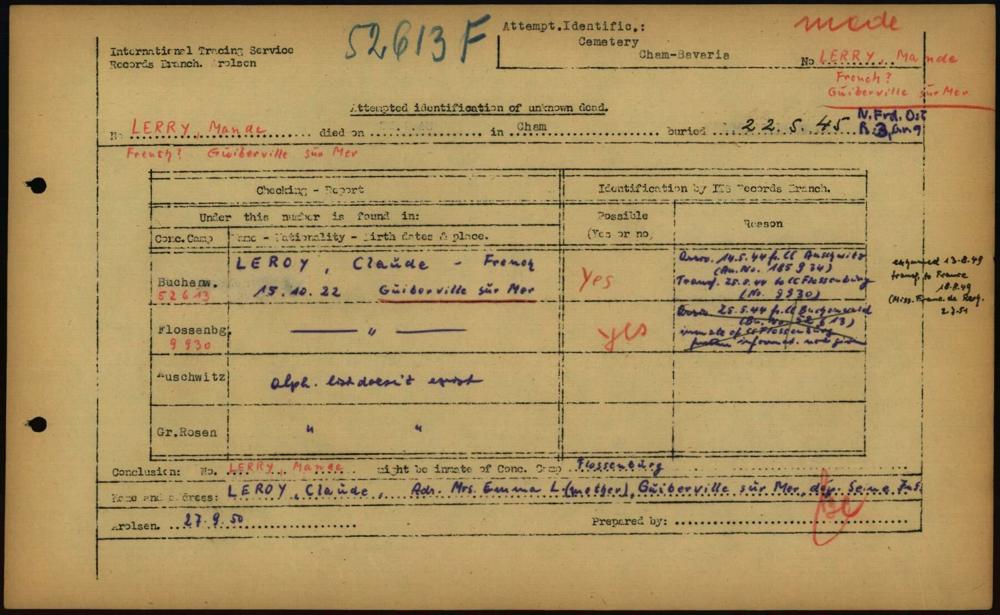 52613 F
made
International Tracing Service
Records Branch. Arolsen
Attempt.Identific.:
Cemetery
Cham-Bavaria
No LERRY, Mande
French?
Guiberville sur Mer
Attempted identification of unknown dead.
No LERRY, Mande died on in Cham buried 22.5.45 N.Frd. Ost
French? Güiberville sür Mer
Checking - Report
Identification by ITS Records Branch.
Under this number is found in:
Possible
(Yes or no)
Reason
Conc.Camp
Name - Nationality - Birth dates & place.
Buchenw.
52613
LEROY, Claüde - French
15.10.22 Güiberville sür Mer
Yes
Arriv. 14.5.44 fr. CC Auschwitz
(Au.No. 185934)
Transf. 25.5.44 to CC Flossenbürg
(No. 9930)
exhumed 13.8.49
transf. to France
18.8.49
Flossenbg.
9930
"
yes
25.5.44 fr. CC Buchenwald
inmate of CC Flossenbürg
Auschwitz
alph. list doesn't exist
Gr.Rosen
" "
Conclusion: No. LERRY, Mande might be inmate of Conc. Camp Flossenbürg
Name and address: LEROY, Claüde, Adr. Mrs. Emma L. (mother), Güiberville sür Mer, dep. Seine Inf.
Arolsen. 27.9.50
Prepared by: